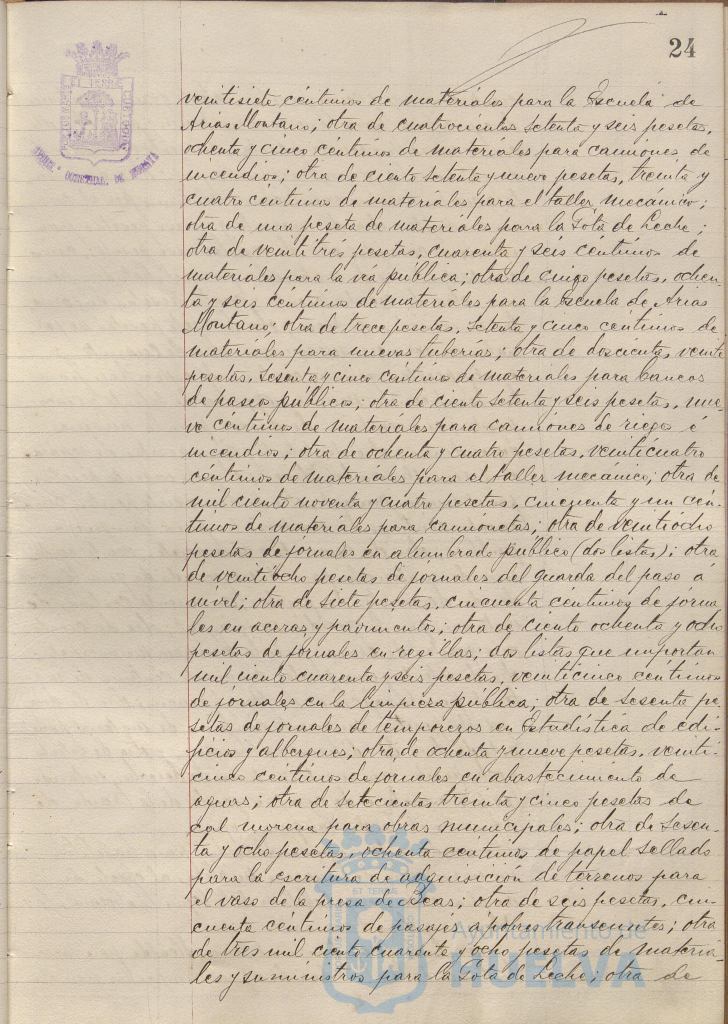 24
veintisiete céntimos de materiales para la Escuela de
Arias Montano; otra de cuatrocientas setenta y seis pesetas,
ochenta y cinco centimos de materiales para camiones de
incendios; otra de ciento setenta y nueve pesetas, treinta y
cuatro céntimos de materiales para el taller mecánico;
otra de una peseta de materiales para la Gota de Leche;
otra de veintitrés pesetas, cuarenta y seis centimos de
materiales para la via pública; otra de cinco pesetas, ochen-
ta y seis céntimos de materiales para la Escuela de Arias
Montano; otra de trece pesetas, setenta y cinco céntimos de
materiales para nuevas tuberías; otra de doscientas veinte
pesetas, sesenta y cinco céntimos de materiales para bancos
de paseos públicos; otra de ciento setenta y seis pesetas, nue-
ve céntimos de materiales para camiones de riegos é
incendios; otra de ochenta y cuatro pesetas, veinticuatro
céntimos de materiales para el taller mecánico; otra de
mil ciento noventa y cuatro pesetas, cincuenta y un cén-
timos de materiales para camionetas; otra de veintiocho
pesetas de jornales en alumbrado público (dos listas); otra
de veintiocho pesetas de jornales del guarda del paso á
nivel; otra de siete pesetas, cincuenta céntimos de jorna-
les en aceras y pavimentos; otra de ciento ochenta y ocho
pesetas de jornales en regillas; dos listas que importan
mil ciento cuarenta y seis pesetas, veinticinco centimos
de jornales en la limpieza pública; otra de sesenta pe-
setas de jornales de temporeros en Estadística de edi-
ficios y albergues; otra de ochenta y nueve pesetas, veinti-
cinco centimos de jornales en abastecimiento de
aguas; otra de setecientas treinta y cinco pesetas de
cal morena para obras municipales; otra de sesen-
ta y ocho pesetas, ochenta centimos de papel sellado
para la escritura de adquisicion de terrenos para
el vaso de la presa de Beas; otra de seis pesetas, cin-
cuenta céntimos de pasajes á pobres transeuntes; otra
de tres mil ciento cuarenta y ocho pesetas de materia-
les y suministros para la Gota de Leche; otra de
Ayuntamiento de
HUELVA